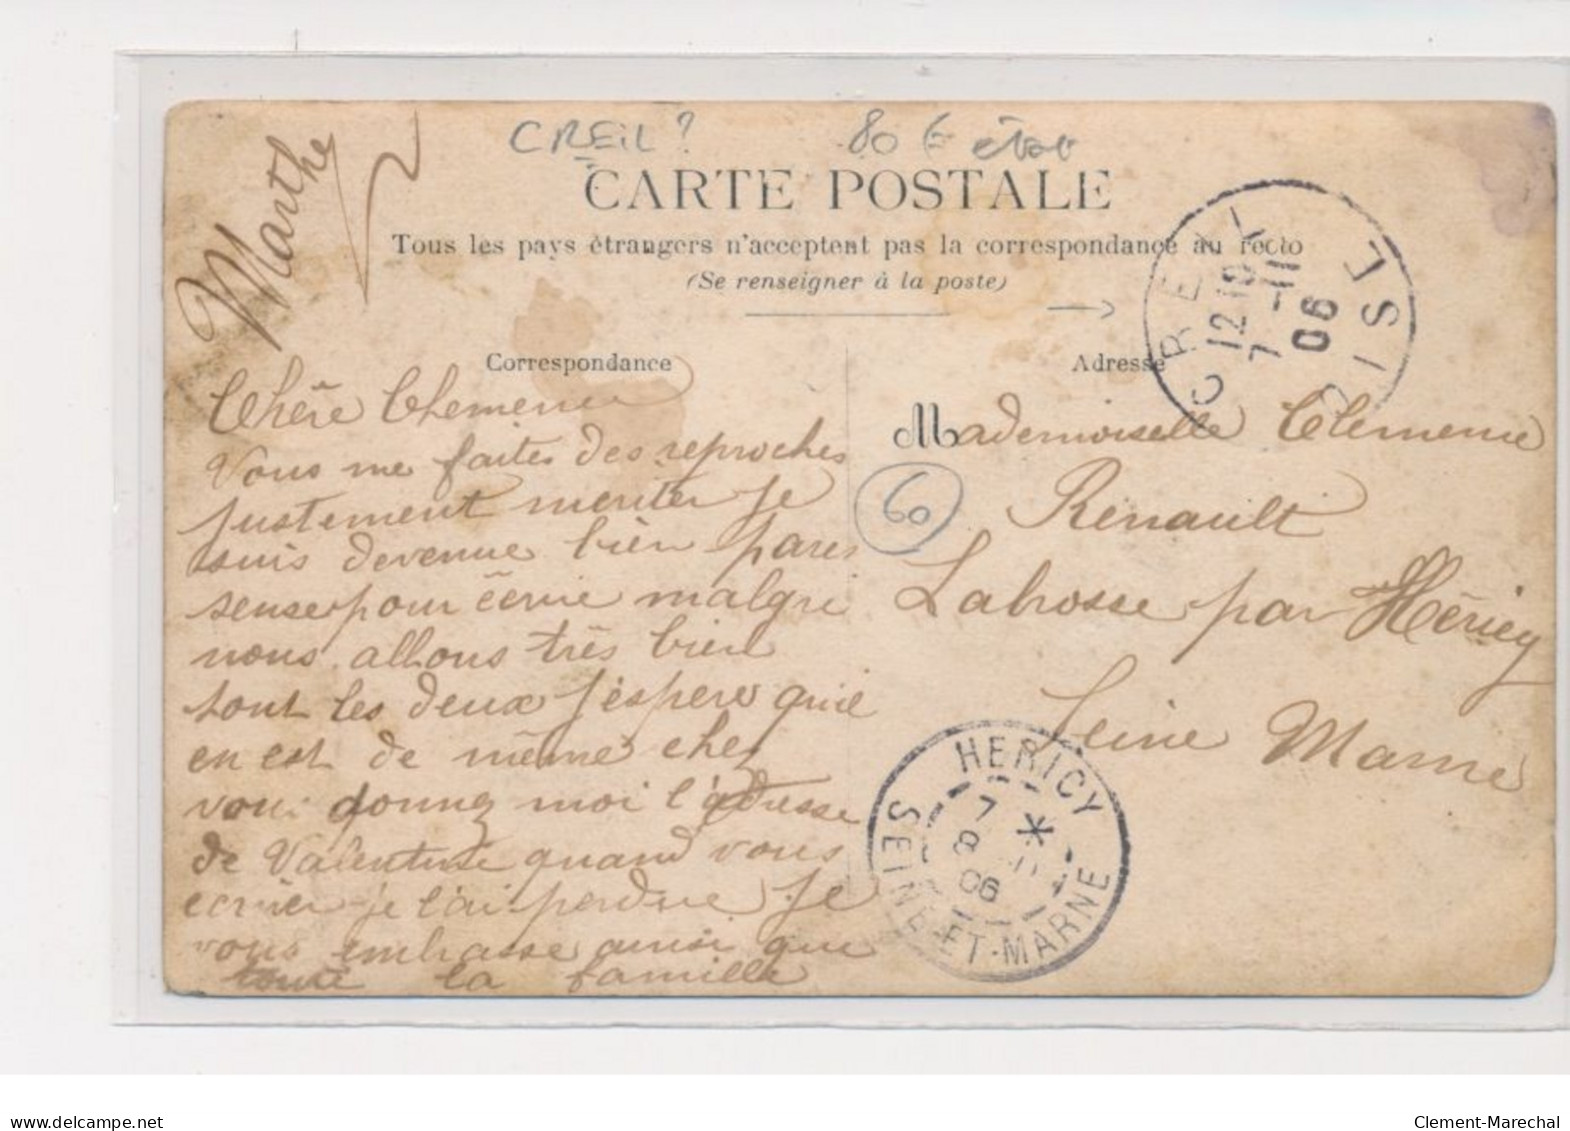 CREIL ?
80 € état
CARTE POSTALE
Tous les pays étrangers n'acceptent pas la correspondance au recto
(Se renseigner à la poste)
Correspondance
Adresse
Marthe
Chère Clemence
Vous me faites des reproches
justement meriter je
suis devenue bien pares
sense pour écrire malgré
nous allons très bien
tout les deux j'éspere qu'il
en est de même chez
vous donnez moi l'adresse
de Valentine quand vous
ecrirer je l'ai perdue Je
vous embrasse ainsi que
toute la famille
Mademoiselle Clemence
Renault
Labrosse par Héricy
Seine Marne
60
CREIL
12 10
7 -11
06
OISE
HERICY
7 *
8 11
06
SEINE-ET-MARNE
www.delcampe.net
Clement-Marechal